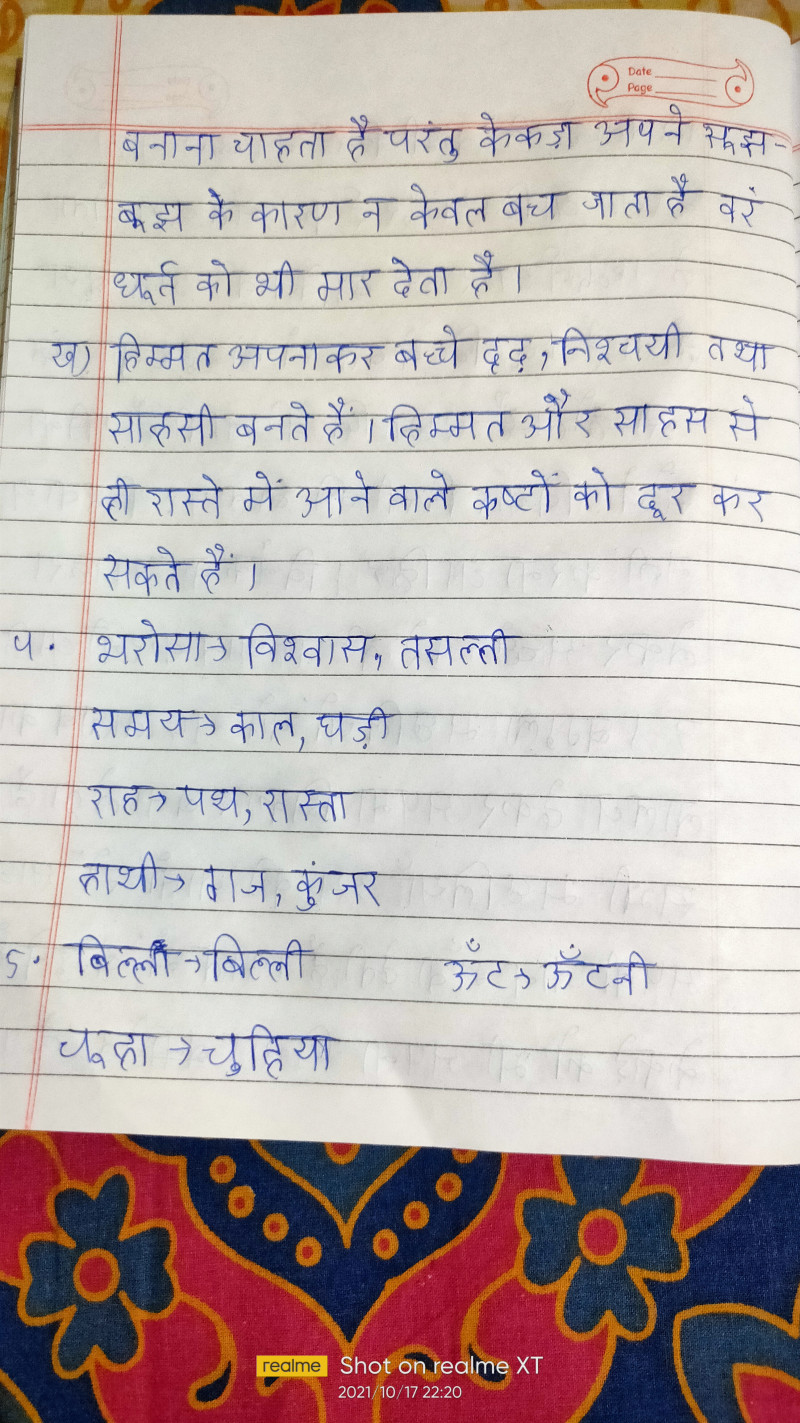 Date
Page
बनाना चाहता है परंतु केकड़ा अपने सूझ-
बूझ के कारण न केवल बच जाता है वरं
धूर्त को भी मार देता है।
ख) हिम्मत अपनाकर बच्चे दृढ़, निश्चयी तथा
साहसी बनते हैं। हिम्मत और साहस से
ही रास्ते में आने वाले कष्टों को दूर कर
सकते हैं।
५. भरोसा → विश्वास, तसल्ली
समय → काल, घड़ी
राह → पथ, रास्ता
हाथी → गज, कुंजर
६. बिल्ला → बिल्ली ऊँट → ऊँटनी
चूहा → चुहिया
realme Shot on realme XT
2021/10/17 22:20